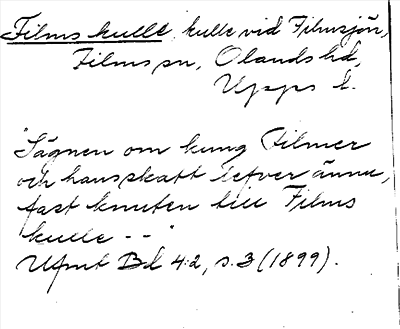 Films kulle, kulle vid Filmsjön,
Films sn, Olands hd,
Upps l.
"Sägnen om kung Filmer
och hans skatt lefver ännu,
fast knuten till Films
kulle --"
Ufmt Bd 4:2, s. 3 (1899).